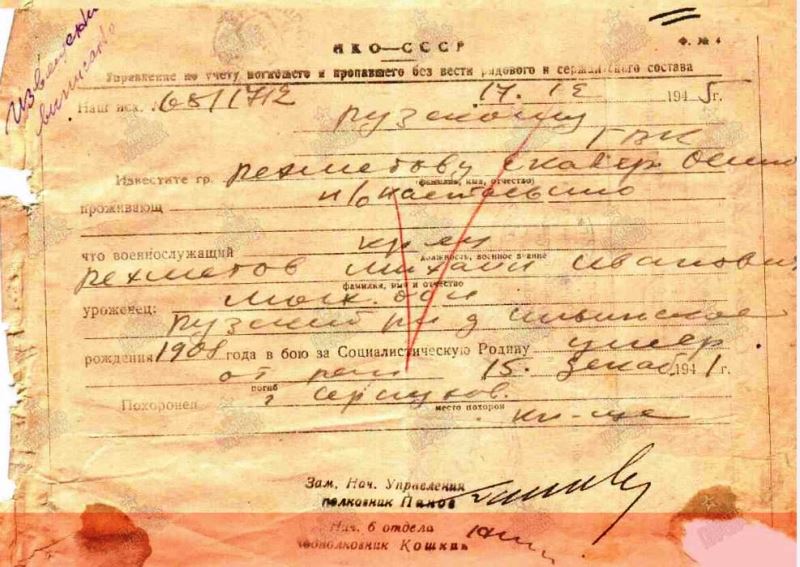 Извещение
выписано
НКО—СССР
Ф. № 4
Управление по учету погибшего и пропавшего без вести рядового и сержантского состава
Наш исх. № 68/1712 17. 12 1945 г.
Рузскому
ГВК
Известите гр. Рехметову
(фамилия, имя, отчество)
проживающ
что военнослужащий
должность, военное звание
Рехметов Михаил Иванович
фамилия, имя и отчество
уроженец: Моск. обл
Рузский р-н д Ильинское
рождения 1908 года в бою за Социалистическую Родину умер
от ран 15. декаб 1941 г.
погиб
Похоронен г Серпухов.
место похорон
кл-ще
Зам. Нач. Управления
полковник Панов
Нач. 6 отдела
подполковник Кошкин